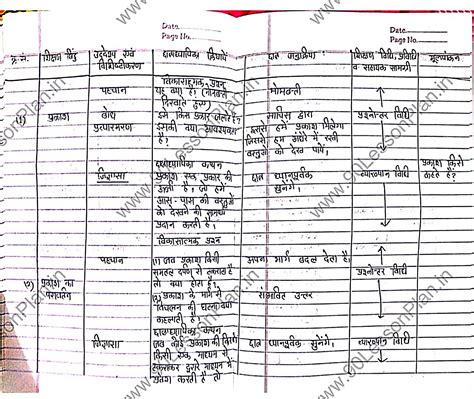 Date
Page No.
Date
Page No.
क्र.सं. शिक्षण बिंदु उद्देश्य एवं विशिष्टीकरण छात्राध्यापिका क्रियाएँ छात्र अनुक्रिया शिक्षण विधि, प्रविधि व सहायक सामग्री मूल्यांकन
विकासात्मक प्रश्न
पहचान यह क्या है। मोमबत्ती
(1) प्रकाश बोध इसे किस प्रकार जलाते हैं? माचिस द्वारा प्रश्नोत्तर विधि
प्रत्यास्मरण इसकी क्या आवश्यकता है? इससे हमें प्रकाश मिलेगा
जिससे हम अंधेरे में रखी
वस्तुओं को देख पाएँ।
छात्राध्यापिका कथन
जिज्ञासा प्रकाश एक प्रकार की छात्र ध्यानपूर्वक सुनेंगे। व्याख्यान विधि प्रकाश किसे कहते हैं?
ऊर्जा है। जो हमें
आस-पास की वस्तुओं
को देखने की समता
प्रदान करती है।
विकासात्मक प्रश्न
पहचान (1) जब प्रकाश किसी अपना मार्ग बदल देता है।
समतल दर्पण से टकराता है प्रश्नोत्तर विधि
(2) प्रकाश का परावर्तन तो क्या होता है।
(2) प्रकाश के मार्ग से संभावित उत्तर
विचलन की घटना क्या
कहलाती है।
छात्राध्यापिका कथन
जिज्ञासा जब कोई प्रकाश की किरण छात्र ध्यानपूर्वक सुनेंगे। व्याख्यान विधि
किसी एक माध्यम से
टकराकर दूसरे माध्यम में
प्रवेश करती है तो
www.90LessonPlan.in